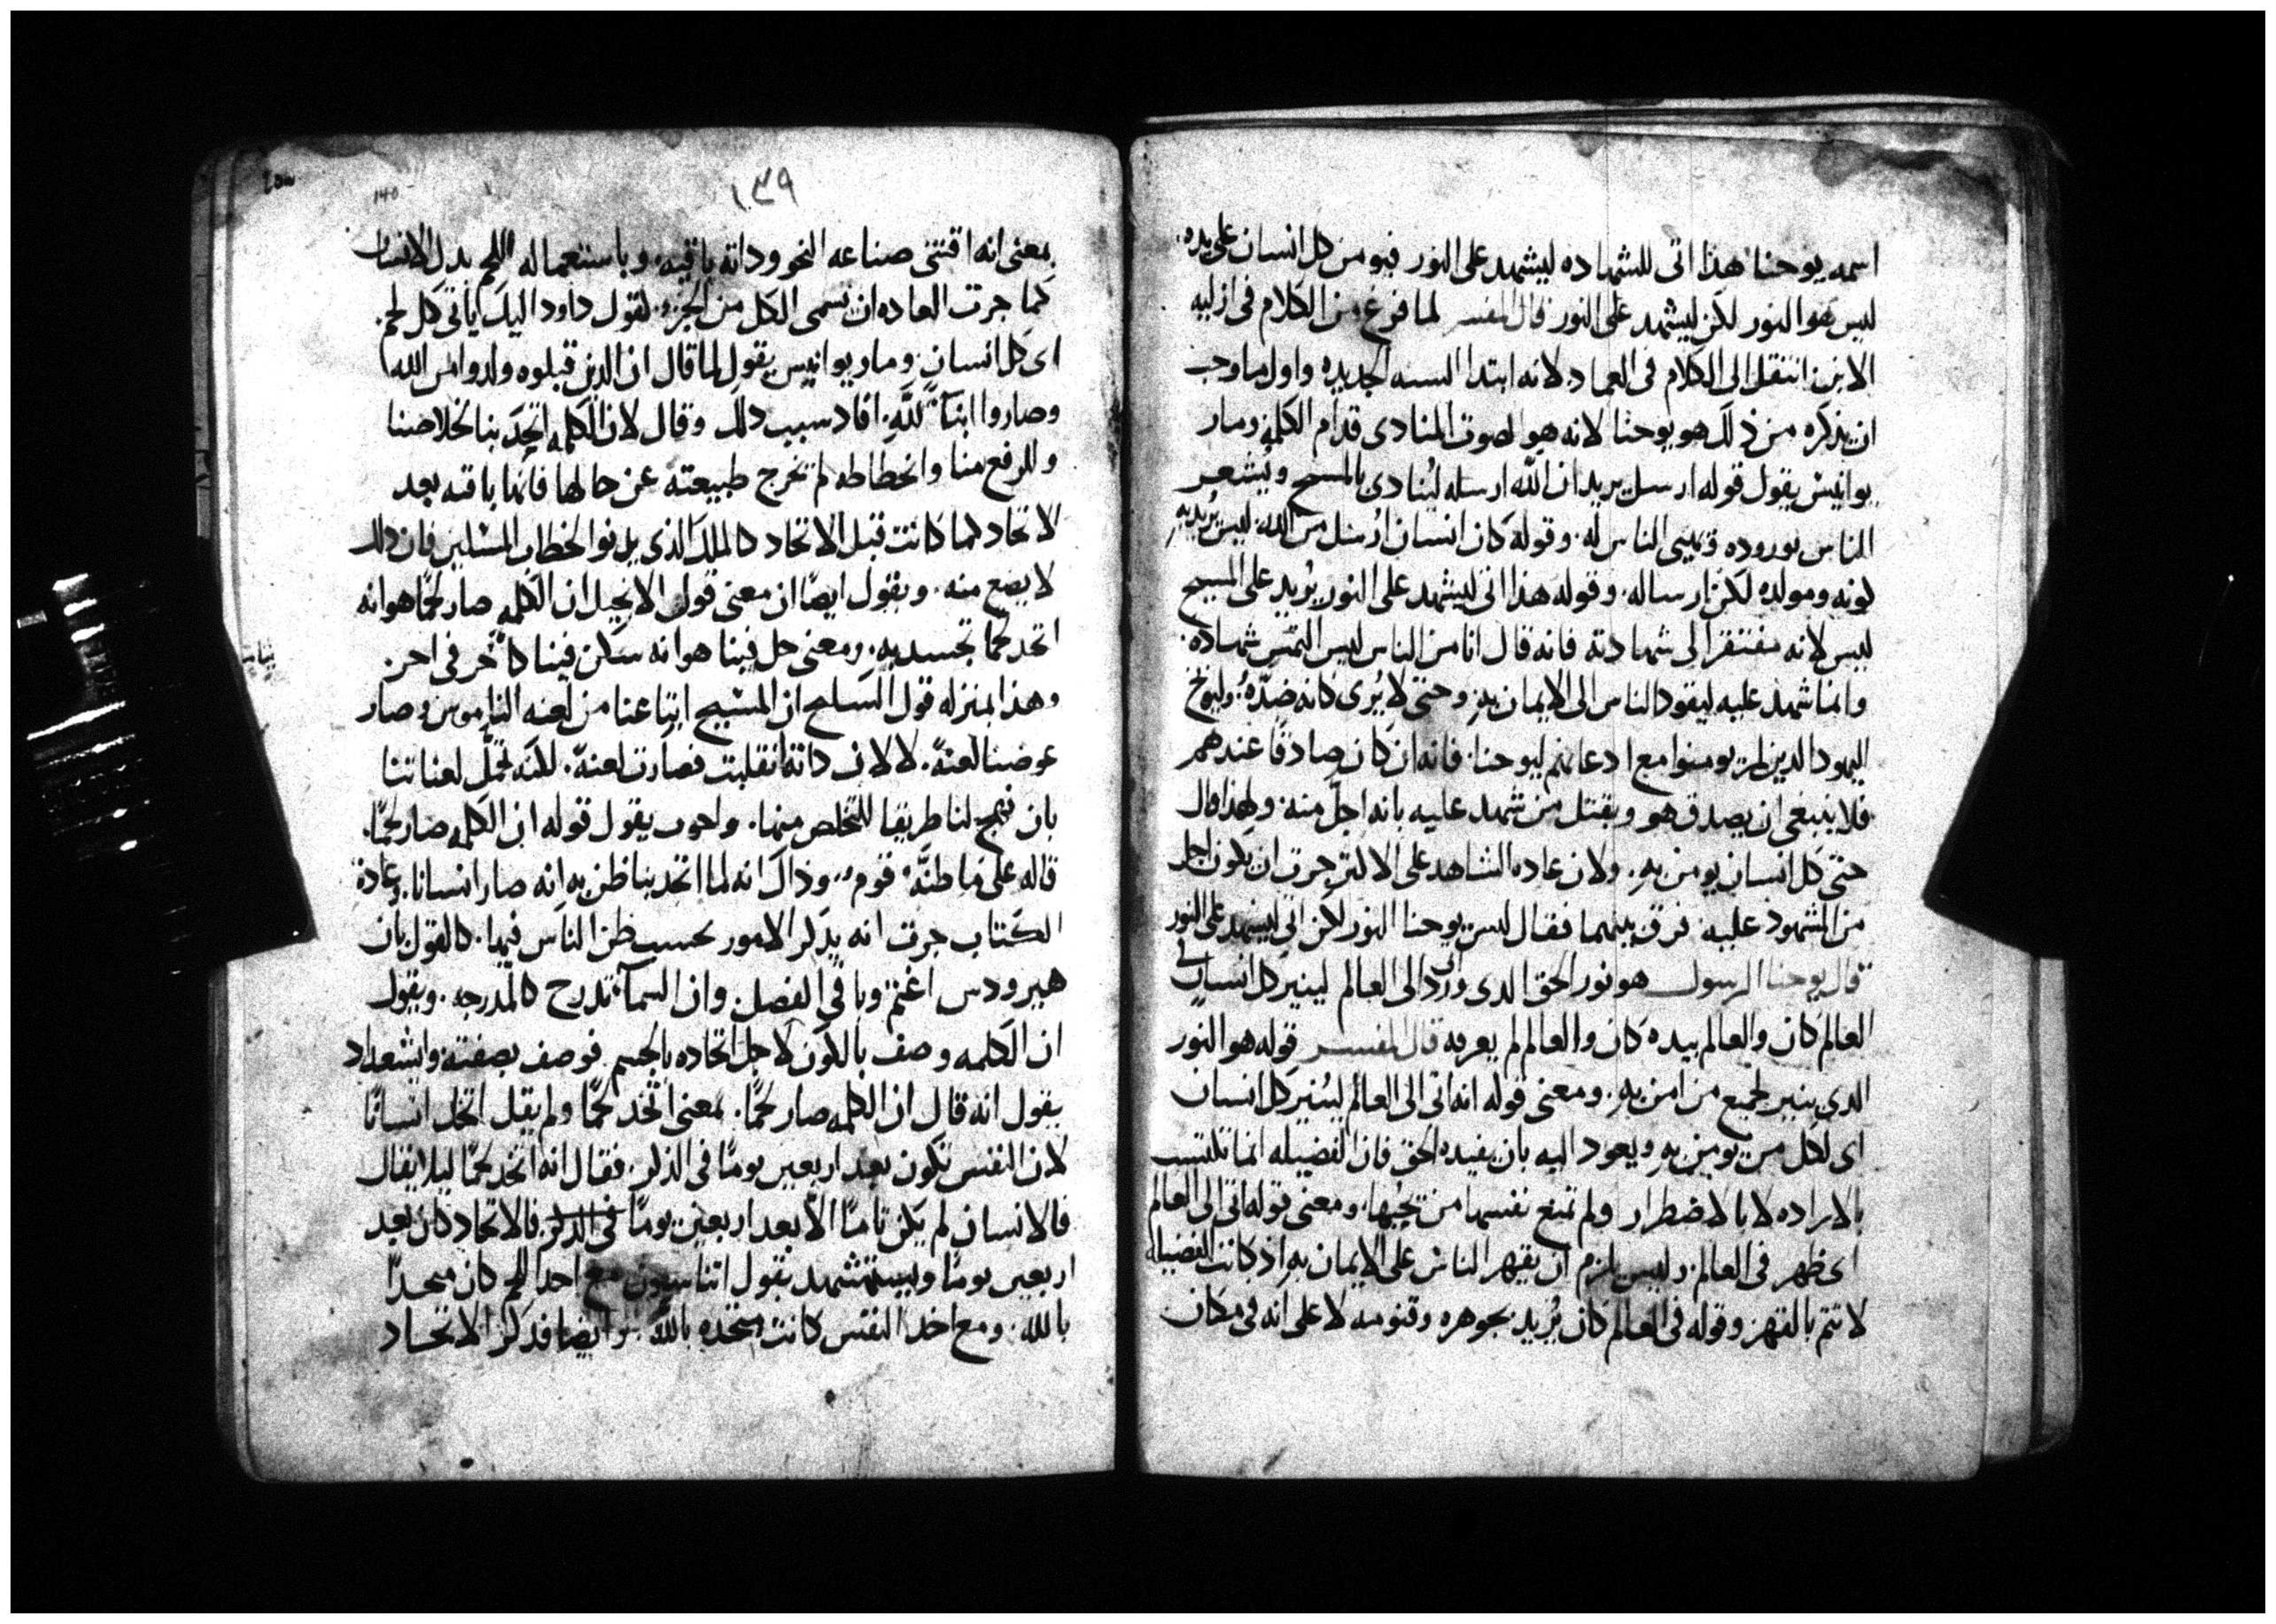 اسمه يوحنا هذا اتى للشهاده ليشهد على النور فيومن كل انسان على يده.
ليس هو النور لكن ليشهد على النور قال المفسر لما فرغ من الكلام فى ازليه
الابن انتقل الى الكلام فى العماد. لانه ابتدا السنه الجديده واول ما وجب
ان يذكره من ذلك هو يوحنا لانه هو الصوت المنادى قدام الكلمه ومار
يوانيس يقول قوله ارسل يريد ان الله ارسله لينادى بالمسيح ويشعر
الناس بوروده ويهيى الناس له. وقوله كان انسان ارسل من الله ليس يريد به
كونه ومولده لكن ارساله. وقوله هذا اتى ليشهد على النور يريد على المسيح
ليس لانه مفتقر الى شهادته فانه قال انا من الناس ليس التمس شهاده.
وانما شهد عليه ليقود الناس الى الايمان به. وحتى لا يُرى كانه ضدّهُ. وليوبخ
اليهود الذين لم يومنوا مع ادعائهم ليوحنا. فانه ان كان صادقا عندهم
فلا ينبغى ان يصدق هو ويقتل من شهد عليه بانه اجلّ منه. ولهذا قال
حتى كل انسان يومن به. ولان عاده الشاهد على الاكثر جرت ان يكون اجل
من المشهود عليه فرق بينهما فقال ليس يوحنا النور لكن اتى ليشهد على النور
قال يوحنا الرسول هو نور الحق الدى ورد الى العالم لينير كل انسان فى
العالم كان والعالم بيده كان والعالم لم يعرفه قال المفسر قوله هو النور
الدى ينير لجميع من امن به. ومعنى قوله انه اتى الى العالم لينير كل انسان
اى لكل من يومن به ويعود اليه بان يفيده الحق فان الفضيله انما تكتسب
بالاراده لا بالاضطرار ولم تمنع نفسها من تحبها. ومعنى قوله اتى الى العالم
اى ظهر فى العالم. وليس يلزم ان يقهر الناس على الايمان به اذ كانت الفضيله
لا تتم بالقهر وقوله فى العالم كان يُريد بجوهره وقنومه لا على انه فى مكان
١٣٩
140
بمعنى انه اقتنى صناعه النحو وداته باقيه. وباستعماله اللحم بدل الانسان
كما جرت العاده ان تسمى الكل من الجزو. لقول داود اليك ياتى كل لحم.
اى كل انسان. ومار يوانيس يقول لما قال ان الذين قبلوه ولدوا من الله
وصاروا ابنآ لله. افاد سبب دلك وقال لان الكلمه اتحد بنا لخلاصنا
وللرفع منا وانحطاطه لم تخرج طبيعته عن حالها فانها باقيه بعد
الاتحاد كما كانت قبل الاتحاد كالملك الذى يدنوا لخطاب المسكين فان دلك
لا يضع منه. ويقول ايضا ان معنى قول الانجيل ان الكلمه صار لحمًا هو انه
اتحد لحما تجسد به. ومعنى حل فينا هو انه سكن فينا كآخر فى اخر.
وهذا بمنزله قول السليح ان المسيح ابتاعنا من لعنه الناموس وصار
عوضنا لعنهً. لا لان داته انقلبت فصارت لعنه. لكنه تحمّل لعناتنا
بان نهج لنا طريقا للتخلص منها. واخرون يقول قوله ان الكلمه صار لحمًا.
قاله على ما ظنّهُ قوم. وذاك انه لما اتحد بنا ظن به انه صار انسانا. وعادة
الكتاب جرت انه يدكر الامور بحسب ظن الناس فيها. كالقول بان
هيرودس اغتم وباقى الفصل. وان السمآ تدرج كالمدرجه. ويقول
ان الكلمه وصف بالكون لاجل اتحاده بالجسم فوصف بصفته وايشعداد
يقول انه قال ان الكلمه صار لحمًا. بمعنى اتخد لحمًا ولم يقل اتخد انسانًا
لان النفس تكون بعد اربعين يومًا فى الذكر. فقال انه اتخد لحمًا ليلا يقال
فالانسان لم يكن تامًا الا بعد اربعين يومًا فى الدكر. فالاتحاد كان بعد
اربعين يومًا ويستشهد بقول اتناسيوس مع اخد اللحم كان متحدًا
بالله. ومع اخد النفس كانت متحده بالله. ايضا فدكر الاتحاد